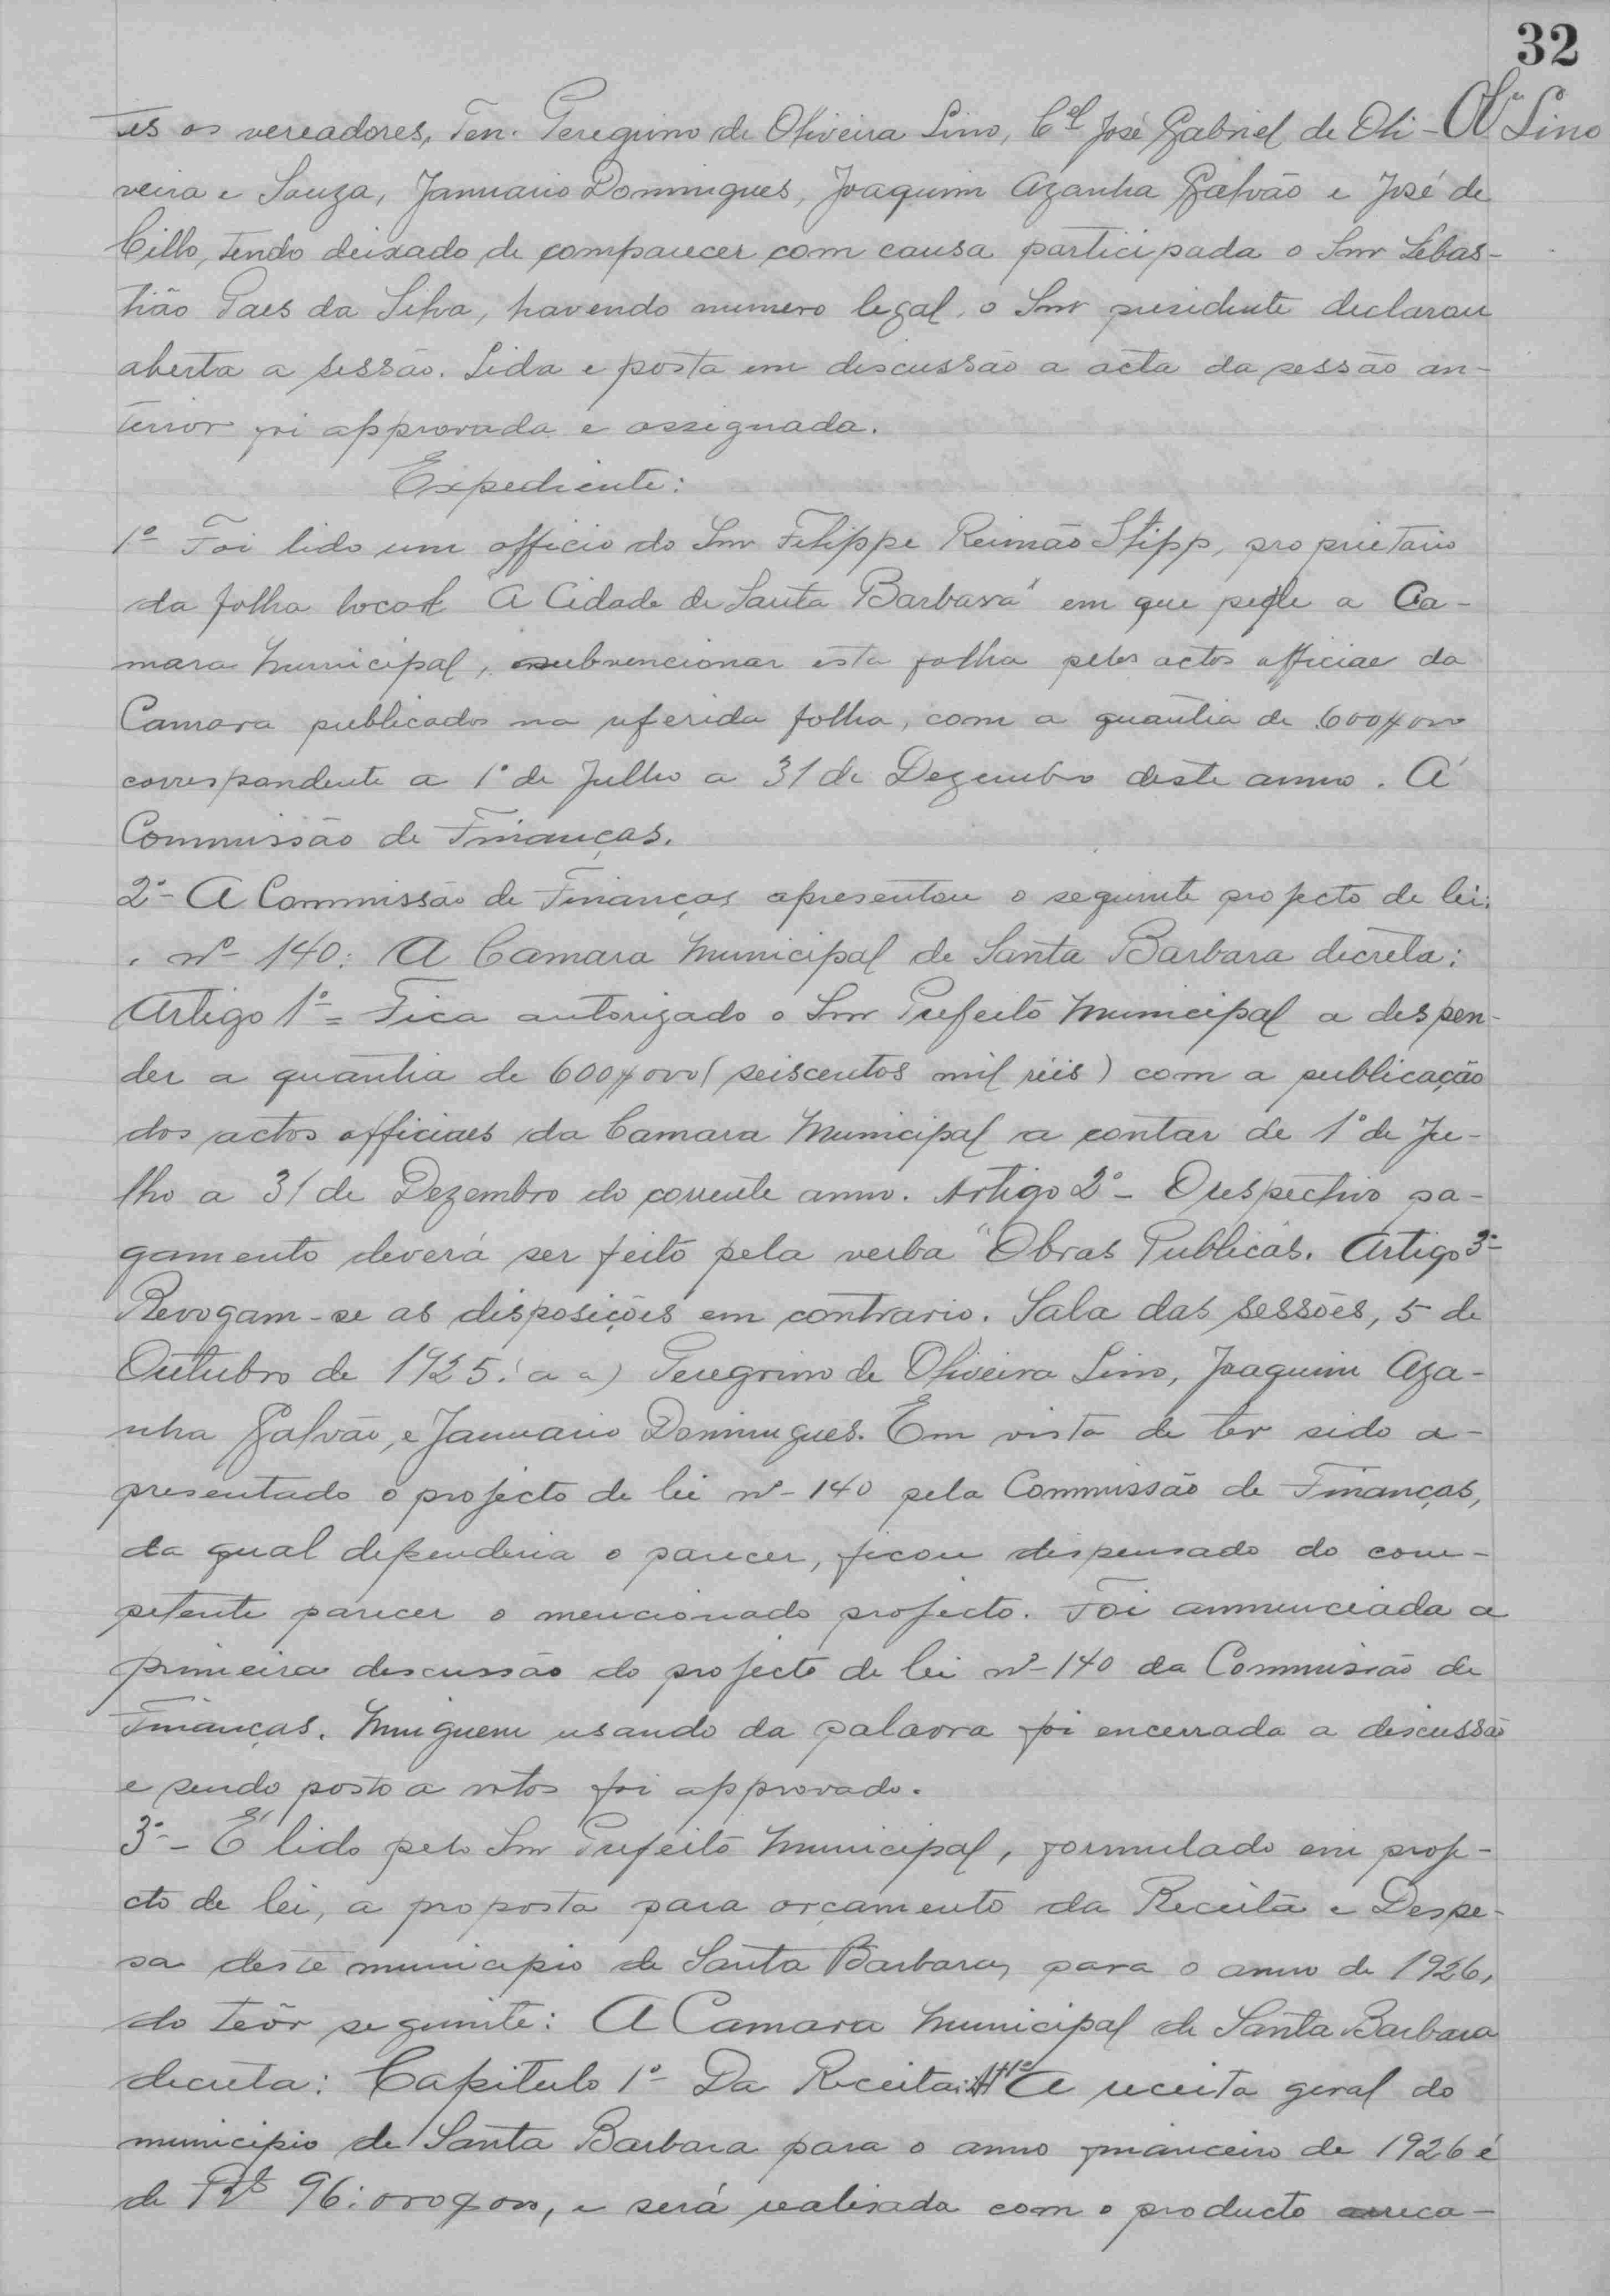 32
tes os vereadores, Ten. Peregrino de Oliveira Lino, Cel José Gabriel de Oli- Olra Lino
veira e Souza, Januario Domingues, Joaquim Azanha Galvão e José de
Cillo, tendo deixado de comparecer com causa participada o Snr Sebas-
tião Paes da Silva, havendo numero legal, o Snr presidente declarou
aberta a sessão. Lida e posta em discussão a acta da sessão an-
terior foi approvada e assignada.
Expediente:
1º Foi lido um officio do Snr Filippe Reimão Stipp, proprietario
da folha local "A Cidade de Santa Barbara" em que pede a Ca-
mara Municipal, subvencionar esta folha pelos actos officiaes da
Camara publicados na referida folha, com a quantia de 600$000
correspondente a 1º de Julho a 31 de Dezembro deste anno. Á
Commissão de Finanças.
2º- A Commissão de Finanças apresentou o seguinte projecto de lei:
. nº 140: A Camara Municipal de Santa Barbara decreta:
Artigo 1º= Fica autorizado o Snr Prefeito Municipal a despen-
der a quantia de 600$000 (seiscentos mil réis) com a publicação
dos actos officiaes da Camara Municipal a contar de 1º de Ju-
lho a 31 de Dezembro do corrente anno. Artigo 2º- O respectivo pa-
gamento deverá ser feito pela verba "Obras Publicas. Artigo 3º-
Revogam-se as disposições em contrario. Sala das sessões, 5 de
Outubro de 1925. (a a) Peregrino de Oliveira Lino, Joaquim Aza-
nha Galvão, e Januario Domingues. Em vista de ter sido a-
presentado o projecto de lei nº 140 pela Commissão de Finanças,
da qual dependeria o parecer, ficou dispensado do com-
petente parecer o mencionado projecto. Foi annunciada a
primeira discussão do projecto de lei nº 140 da Commissão de
Finanças. Ninguem usando da palavra foi encerrada a discussão
e sendo posto a votos foi approvado.
3º- É lido pelo Snr Prefeito Municipal, formulado em proje-
cto de lei, a proposta para orçamento da Receita e Despe-
sa deste municipio de Santa Barbara, para o anno de 1926,
do teôr seguinte: A Camara Municipal de Santa Barbara
decreta: Capitulo 1º- Da Receita: Art 1º A receita geral do
municipio de Santa Barbara para o anno financeiro de 1926 é
de Rs 96:000$000, e será realisada com o producto arreca-